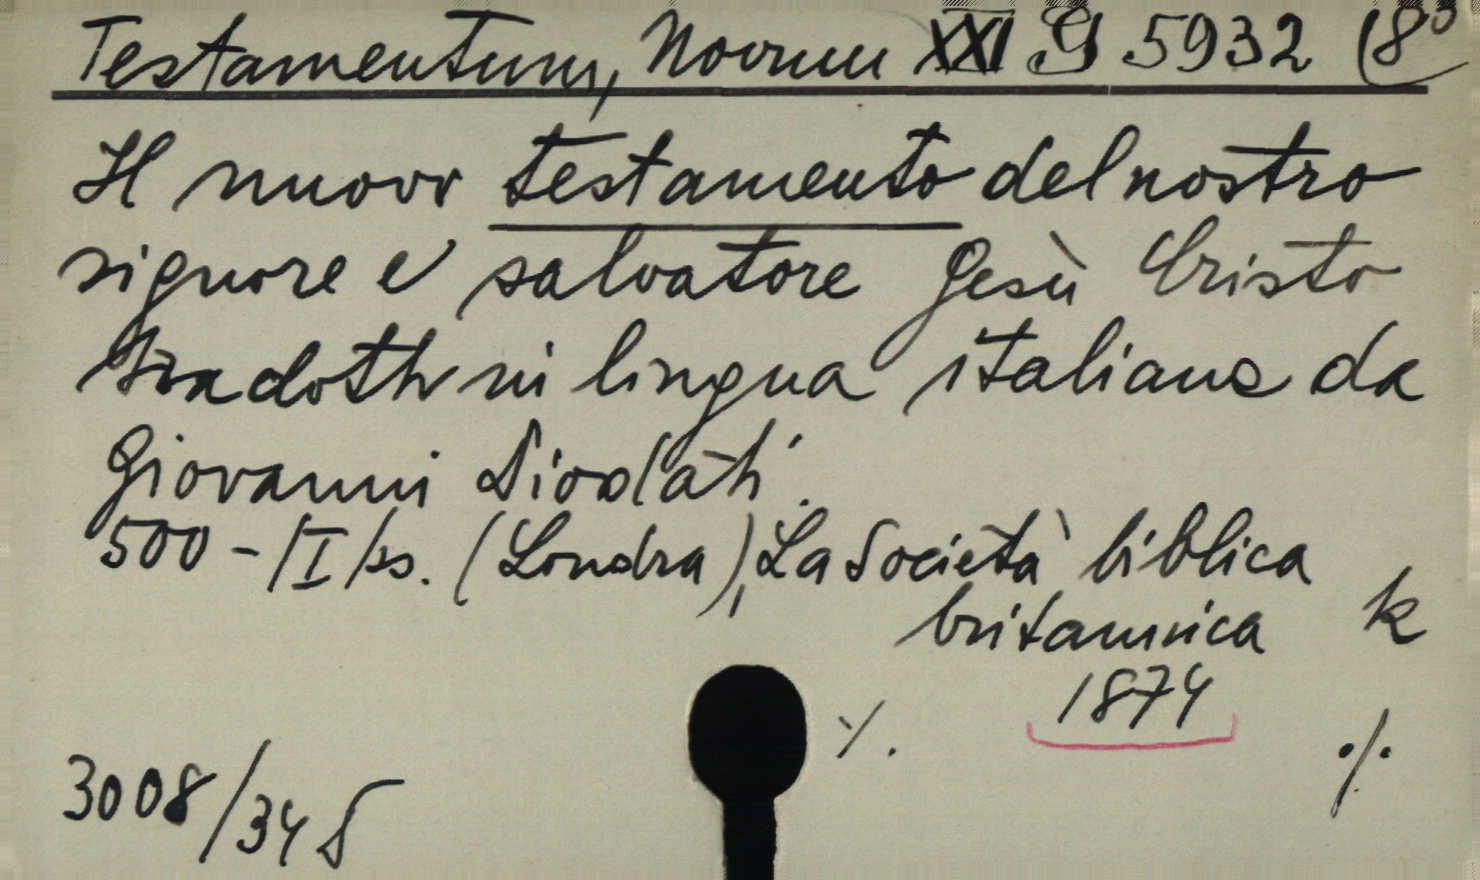 Testamentum, Novum XXI G 5932 (8°
Il nuovo testamento del nostro
signore e salvatore Gesù Cristo
tradotto in lingua italiana da
Giovanni Diodati.
500 - /I/ ks. (Londra), La Società biblica
britannica k
1874
%.
./.
3008/34